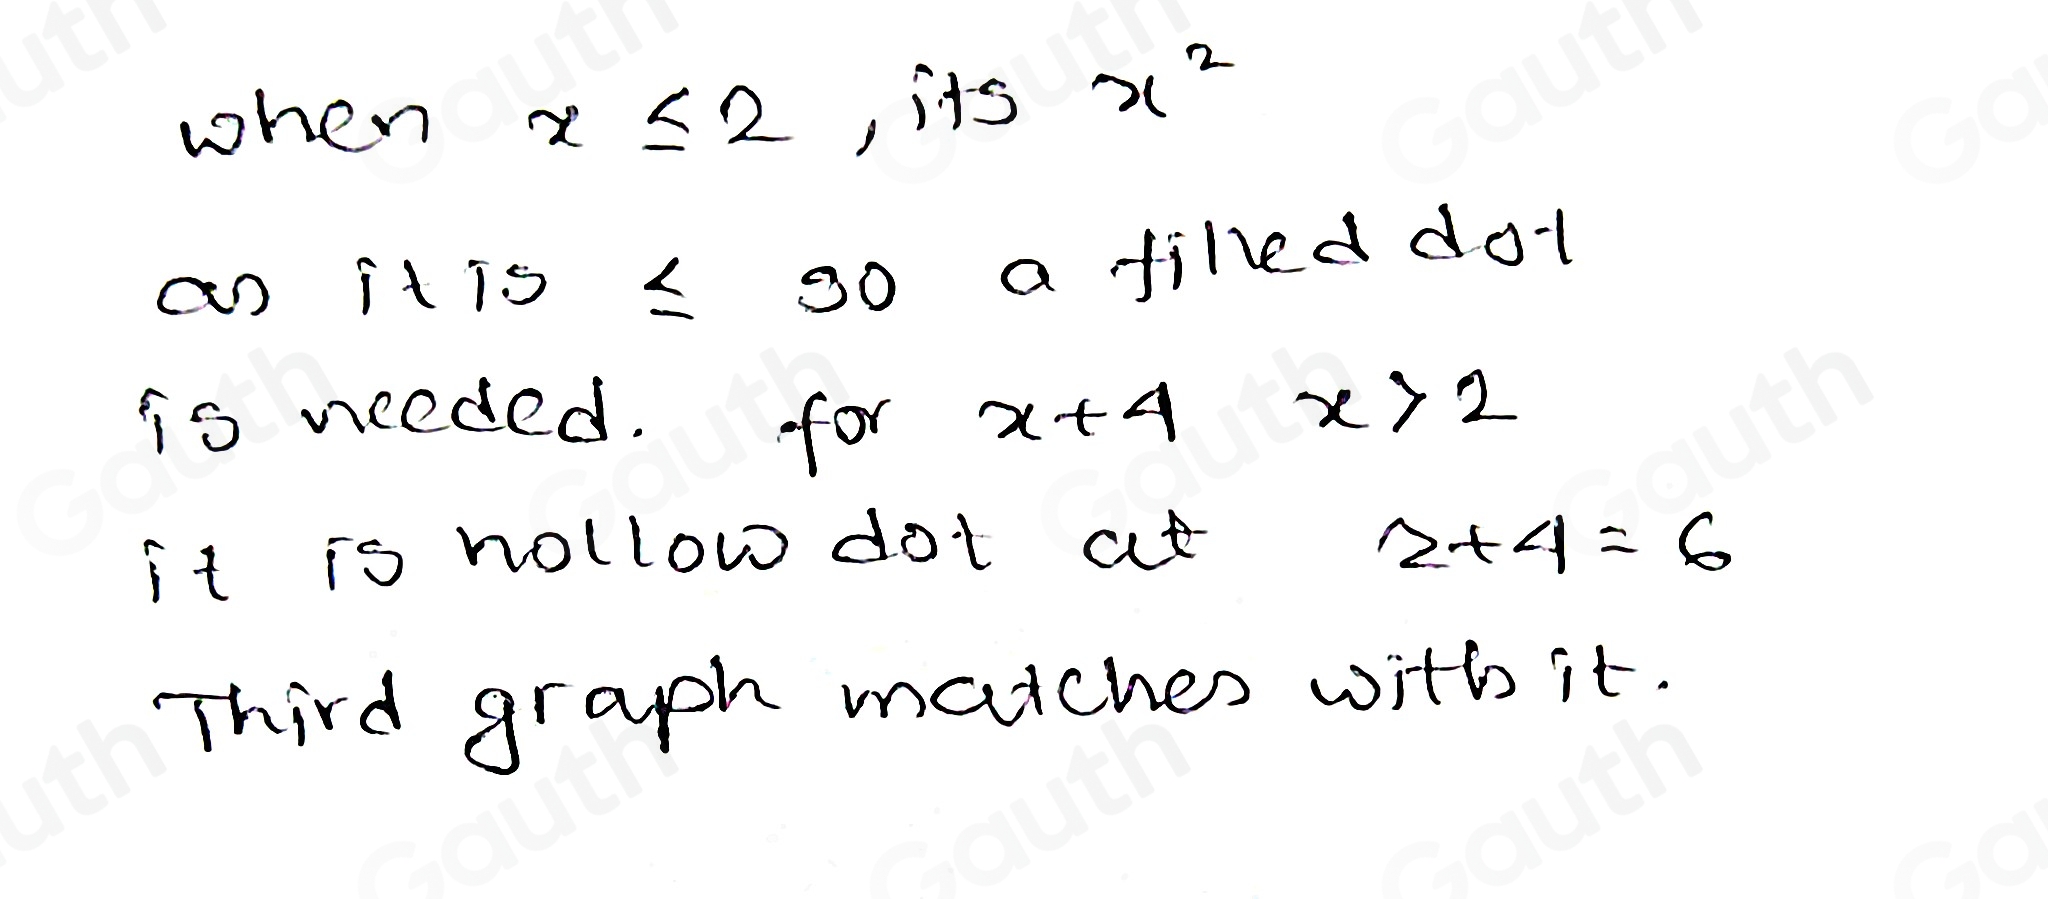 when x ≤ 2, its x²
as it is ≤ so a filled dot
is needed. for x+4 x>2
it is hollow dot at 2+4=6
Third graph matches with it.